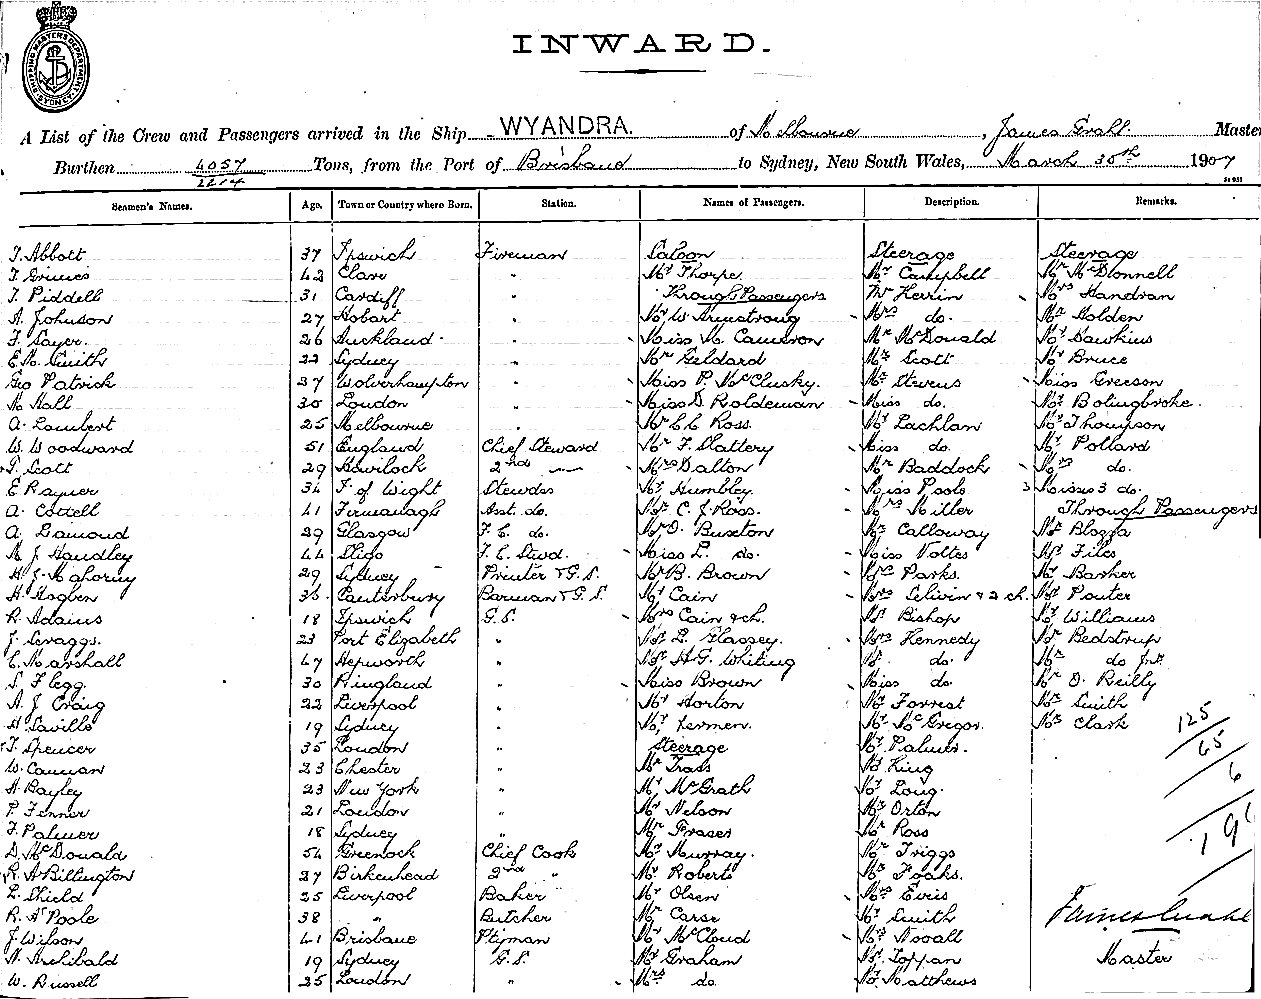 SHIPPING MASTER'S DEPARTMENT SYDNEY
INWARD.
A List of the Crew and Passengers arrived in the Ship WYANDRA. of Melbourne, James Grahl. Master
Burthen 4057 Tons, from the Port of Brisbane to Sydney, New South Wales, March 30th 1907
2214
Seamen's Names. Age. Town or Country where Born. Station. Names of Passengers. Description. Remarks.
T. Abbott 37 Ipswich Fireman Saloon Steerage Steerage
T. Grimes 42 Clare " Mr Thorpe Mr Campbell Mr McDonnell
T. Piddell 31 Cardiff " Through Passengers Mr Herrin Mrs Handran
A. Johnson 27 Hobart " Mr W. Armstrong Mrs do. Mr Holden
F. Sayer. 26 Auckland " Miss M. Cameron Mr McDonald Mr Dawkins
E. M. Smith 22 Sydney " Mr Geldard Mr Scott Mr Bruce
Geo Patrick 37 Wolverhampton " Miss P. McClusky. Mr Stevens Miss Greeson
M Hall 30 London " Miss D. Roldeman Miss do. Mr Bolingbroke.
A. Lambert 25 Melbourne " Mr C C Ross. Mr Lachlan Mr Thompson
W. Woodward 51 England Chief Steward Mr F. Slattery Miss do. Mr Pollard
T. Scott 29 Hawilock 2nd " Mrs Dalton Mr Baddock Mrs do.
E Rayner 34 I. of Wight Stewdss Mr Humbley. Miss Poole 3 Misses 3 do.
A. Cottell 41 Firmanagh Asst. do. Mr C. J. Ross. Mrs Miller Through Passengers
A. Gamond 29 Glasgow F. C. do. Mr D. Buxton Mr Calloway Mr Blogga
M J Handley 44 Sligo F. C. Stwd. Miss L. do. Miss Voltes Mr Files
H. J. Mahony 29 Sydney Printer & G. S. Mr B. Brown Mrs Parks. Mr Barker
H. Hogben 36 Canterbury Barman & G. S. Mr Cain Mrs Selivin & 2 ch. Mr Pouter
R. Adams 18 Ipswich G. S. Mrs Cain & ch. Mr Bishop Mr Williams
J. Scraggs. 23 Port Elizabeth " Mr L. Glassey. Mrs Kennedy Mr Bedstrup
C. Marshall 47 Hepworth " Mr H. G. Whiting Mr do. Mr do Jnr.
S. Flegg 30 Ringland " Miss Brown Miss do. Mr O. Reilly
A. J. Craig 22 Liverpool " Mr Horton Mr Forrest Mr Smith
H. Saville 19 Sydney " Mr Kermen. Mr McGregor. Mr Clark
T. Spencer 35 London " Steerage Mr Palmer.
125
W. Cannan 23 Chester " Mr Trass Mr King
65
A Bayley 23 New York " Mr McGrath Mr Long.
6
P. Fenner 21 London " Mr Nelson Mr Orton
F. Palmer 18 Sydney " Mr Fraser Mr Ross
196
D. McDonald 54 Greenock Chief Cook Mr Murray. Mr Triggs
R. A Billington 27 Birkenhead 2nd " Mr Roberts Mr Foaks.
L. Shield 25 Liverpool Baker Mr Olsen Mrs Evis
R. A. Poole 38 " Butcher Mr Carse Mr Smith
J. Wilson 41 Brisbane Ptyman Mr McCloud Mrs Novall
N. Archibald 19 Sydney G. S. Mr Graham Mr Toppan
W. Russell 25 London " Mrs do. Mr Matthews
James Grahl
Master